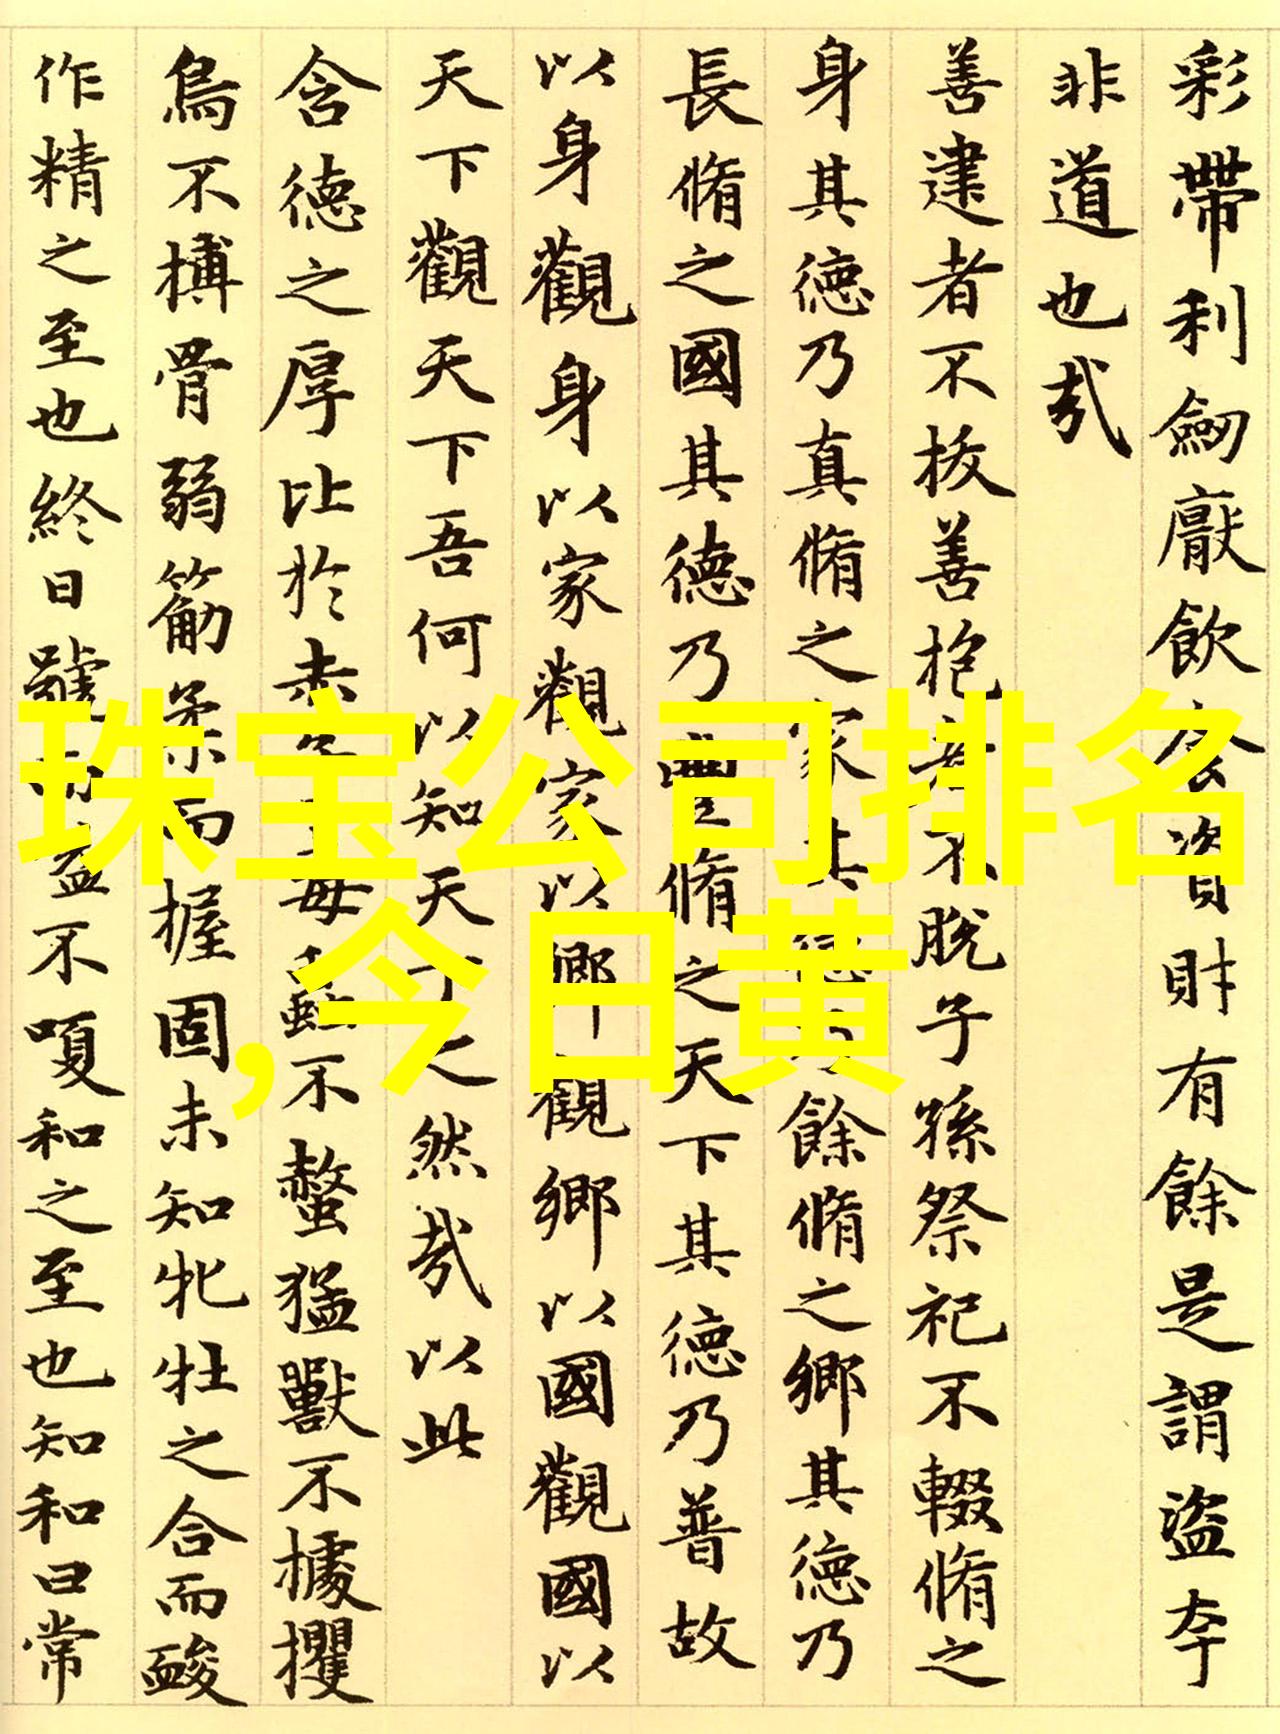 彩帶利劒厭飲食資財有餘是謂盜夸
非道也㦲
善建者不拔善抱者不脫子孫祭祀不輟脩之
身其德乃真脩之家其德乃餘脩之鄉其德乃
長脩之國其德乃豐脩之天下其德乃普故
以身觀身以家觀家以鄉觀鄉以國觀國以
天下觀天下吾何以知天下之然㦲以此
含德之厚比於赤子毒蟲不螫猛獸不據攫
鳥不搏骨弱筋柔而握固未知牝牡之合而酸
作精之至也終日號而嗌不嗄和之至也知和曰常
珠宝公司排名
,今日黄